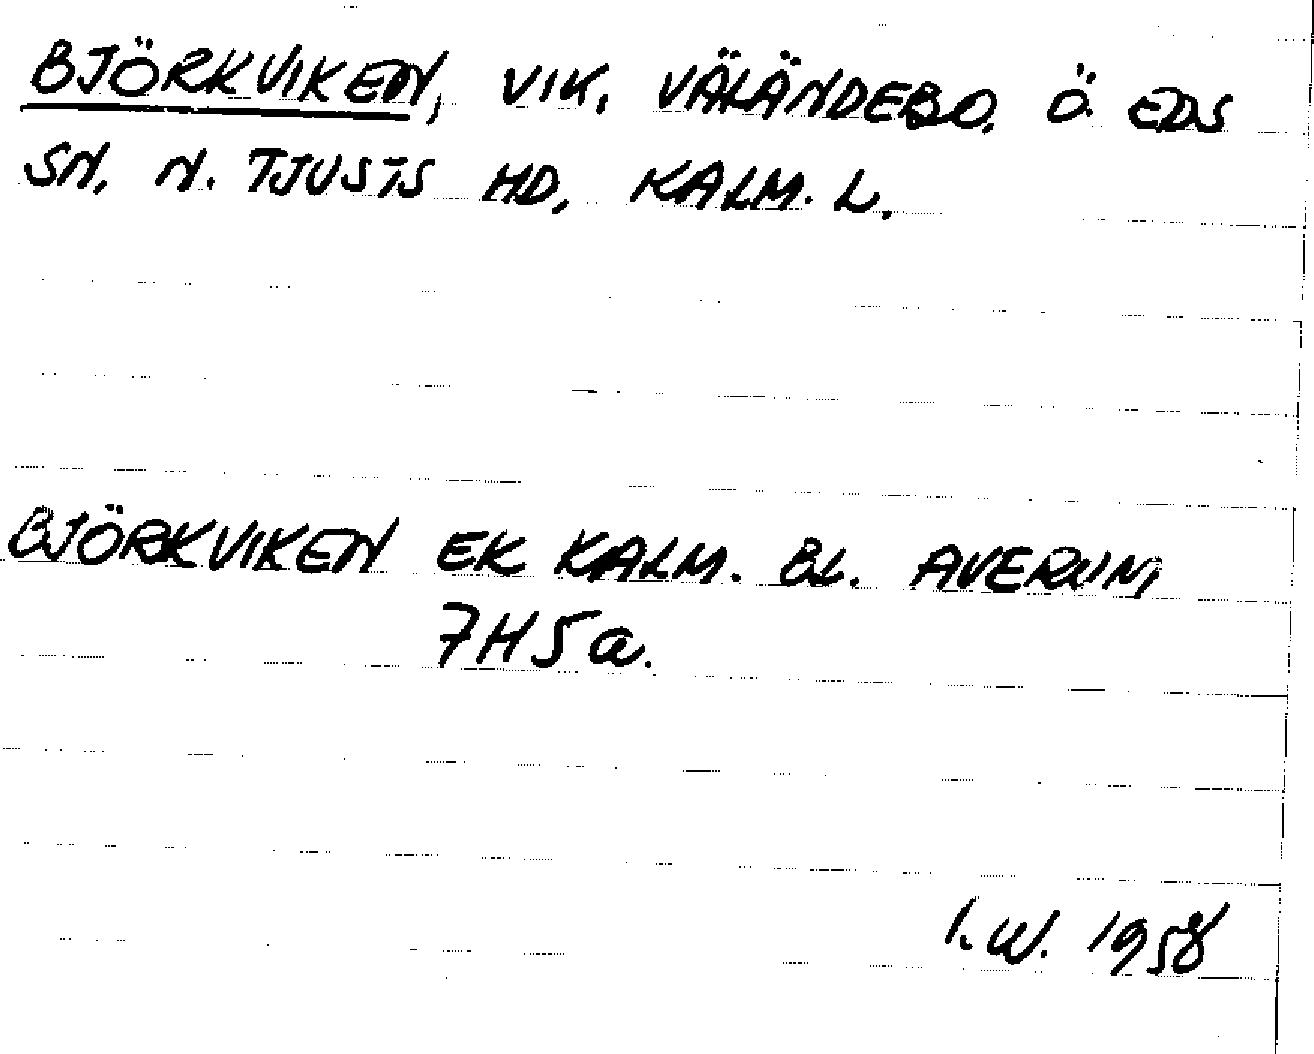 BJÖRKVIKEN, VIK. VÄLÄNDEBO. Ö. EDS
SN, N. TJUSTS HD, KALM. L.
BJÖRKVIKEN EK KALM. BL. AVERUM,
7H5a.
I.W. 1958